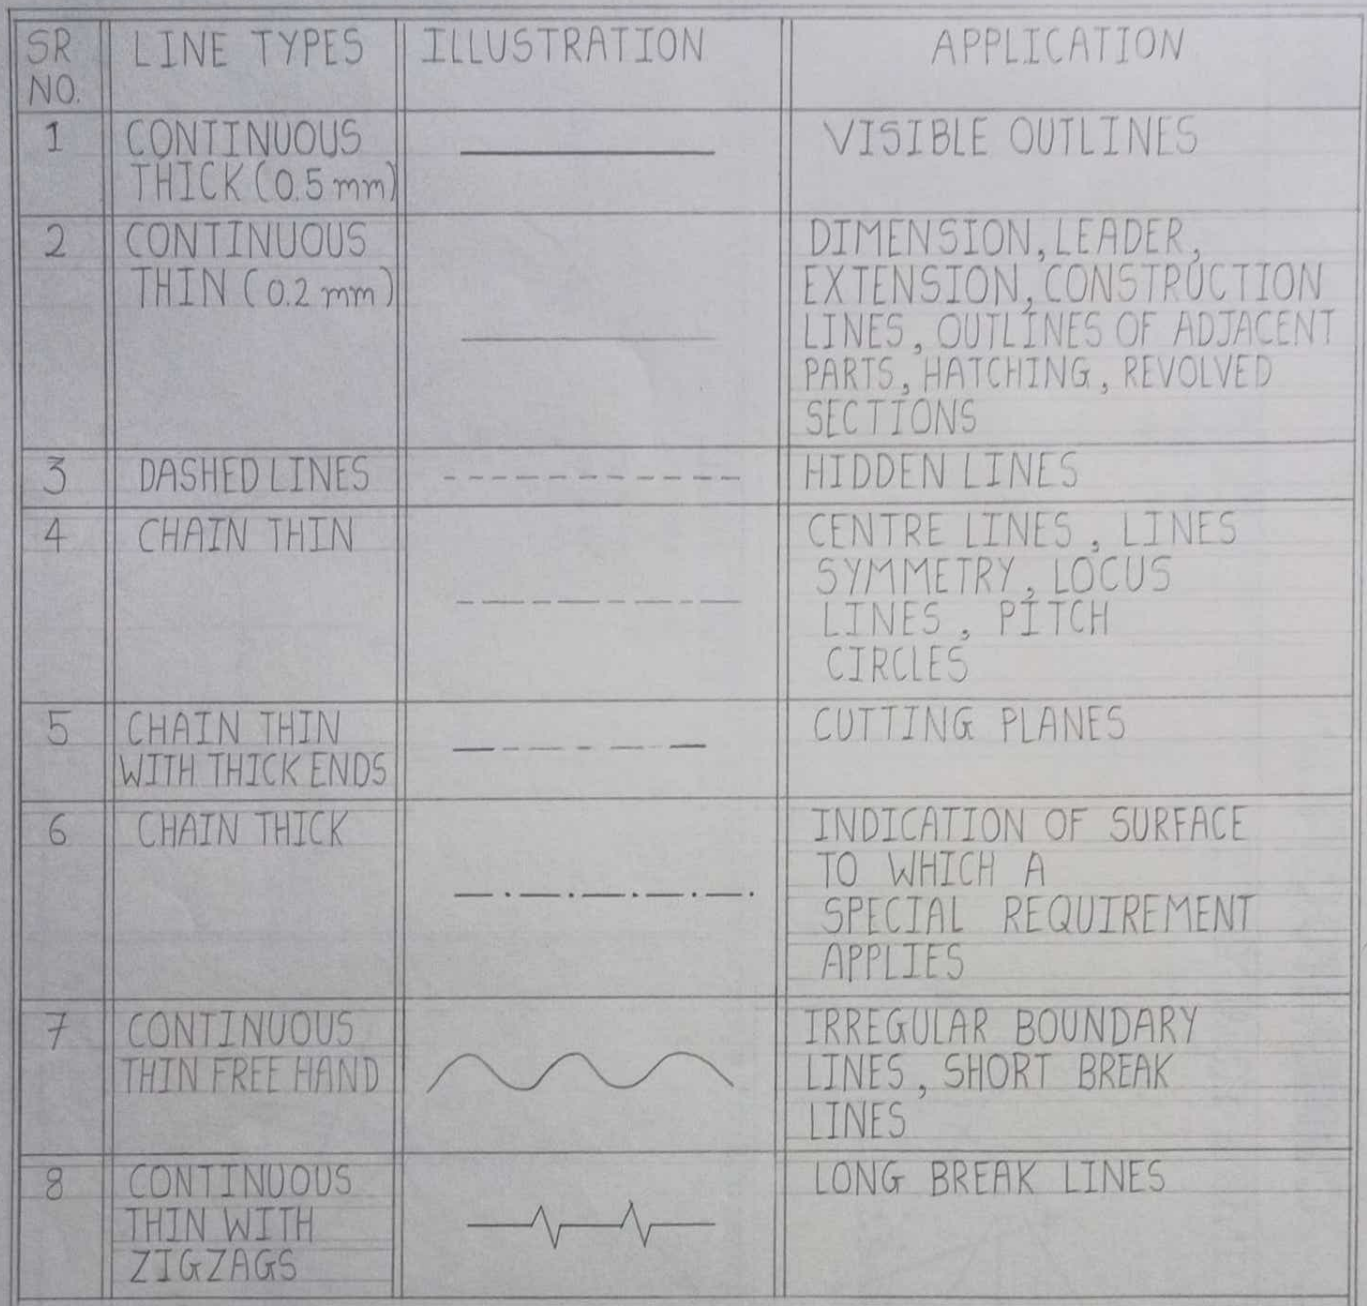 SR NO.
LINE TYPES
ILLUSTRATION
APPLICATION
1
CONTINUOUS
THICK (0.5 mm)
VISIBLE OUTLINES
2
CONTINUOUS
THIN (0.2 mm)
DIMENSION, LEADER,
EXTENSION, CONSTRUCTION
LINES, OUTLINES OF ADJACENT
PARTS, HATCHING, REVOLVED
SECTIONS
3
DASHED LINES
HIDDEN LINES
4
CHAIN THIN
CENTRE LINES, LINES
SYMMETRY, LOCUS
LINES, PITCH
CIRCLES
5
CHAIN THIN
WITH THICK ENDS
CUTTING PLANES
6
CHAIN THICK
INDICATION OF SURFACE
TO WHICH A
SPECIAL REQUIREMENT
APPLIES
7
CONTINUOUS
THIN FREE HAND
IRREGULAR BOUNDARY
LINES, SHORT BREAK
LINES
8
CONTINUOUS
THIN WITH
ZIGZAGS
LONG BREAK LINES